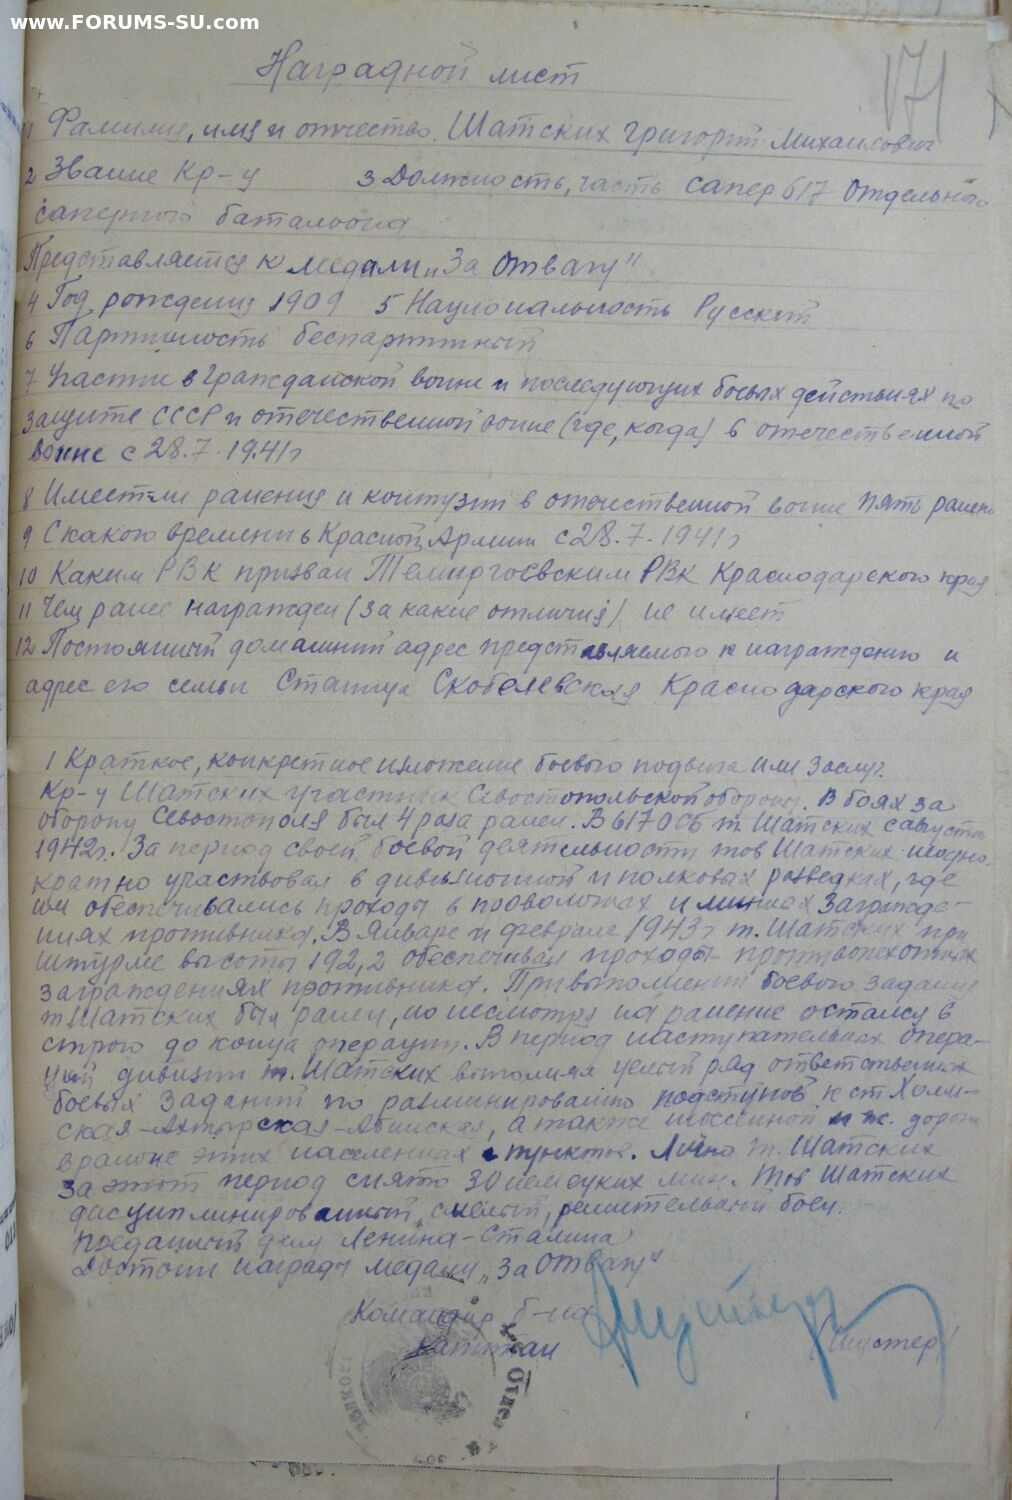 www.FORUMS-SU.com
171
Наградной лист
1 Фамилия, имя и отчество. Шатских Григорий Михаилович
2 Звание Кр-ц 3 Должность, часть сапер 617 отдельного
саперного баталиона
Представляется к медали „За Отвагу"
4 Год рождения 1909 5 Национальность Русский
6 Партийность беспартийный
7 Участие в Гражданской войне и последующих боевых действиях по
защите СССР и отечественной войне (где, когда) в отечественной
войне с 28.7.1941г
8 Имеет-ли ранения и контузии в отечественной войне пять ранен
9 С какого времени в Красной Армии с 28.7.1941г
10 Каким РВК призван Темиргоевским РВК Краснодарского края
11 Чем ранее награжден (за какие отличия) не имеет
12 Постоянный домашний адрес представляемого к награждению и
адрес его семьи Станица Скобелевская Краснодарского края
1 Краткое, конкретное изложение боевого подвига или заслуг.
Кр-ц Шатских участник Севостопольской обороны. В боях за
оборону Севостополя был 4 раза ранен. В 617 ОСБ т. Шатских с августа
1942г. За период своей боевой деятельности тов Шатских неодно-
кратно участвовал в дивизионной и полковых разведках, где
им обеспечивались проходы в проволочных и минных загражде-
ниях противника. В Январе и феврале 1943г т. Шатских при
штурме высоты 192,2 обеспечивал проходы противопехотных
заграждениях противника. При выполнении боевого задание
т. Шатских был ранен, но несмотря на ранение остался в
строю до конца операции. В период наступательных опера-
ций дивизии т. Шатских выполнял целый ряд ответственных
боевых заданий по разминированию подступов к ст Холм-
ская-Ахтырская-Абинская, а также шоссейной и ж. дороги
в районе этих населенных пунктов. Лично т. Шатских
за этот период снято 30 немецких мин. Тов Шатских
дисциплинированный, смелый, решительный боец.
преданный делу Ленина-Сталина
Достоин награды медали „За Отвагу"
Командир б-на
капитан (Шустер)
Отдел